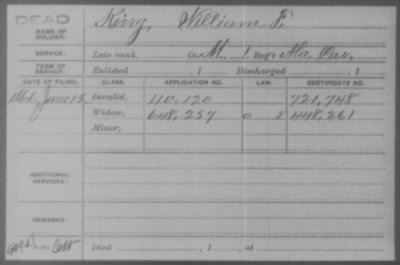 DEAD
NAME OF SOLDIER: King, William F.
SERVICE: Late rank, Co. M, 1 Reg't Ala. Cav.
TERM OF SERVICE: Enlisted , 1 Discharged , 1
DATE OF FILING. CLASS. APPLICATION NO. LAW. CERTIFICATE NO.
June 15 Invalid, 110,120 721,748
Widow, 648,257 448,261
Minor,
ADDITIONAL SERVICES:
REMARKS:
Died , 1 , at